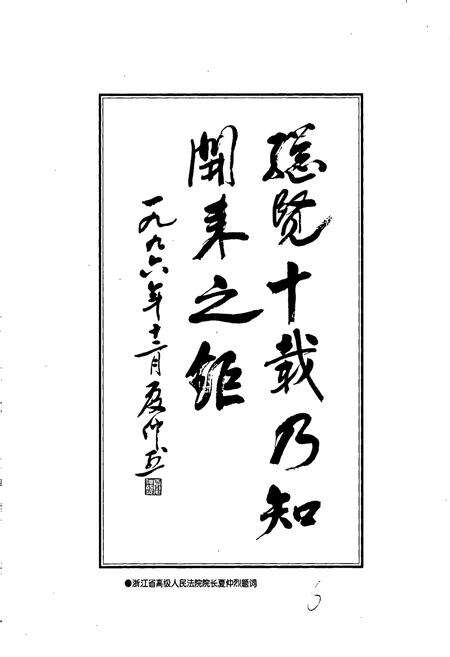 總覽十載乃知
開来之鉅
一九九六年十二月夏仲烈
●浙江省高级人民法院院长夏仲烈题词